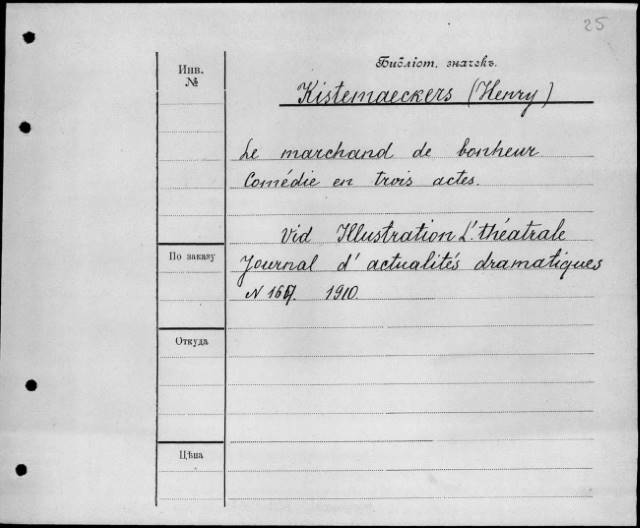 25
Инв.
№
Библіот. значекъ.
Kistemaeckers (Henry)
Le marchand de bonheur
Comédie en trois actes.
Vid Illustration L'théatrale
По заказу
Journal d'actualités dramatiques
N 1910.
Откуда
Цѣна